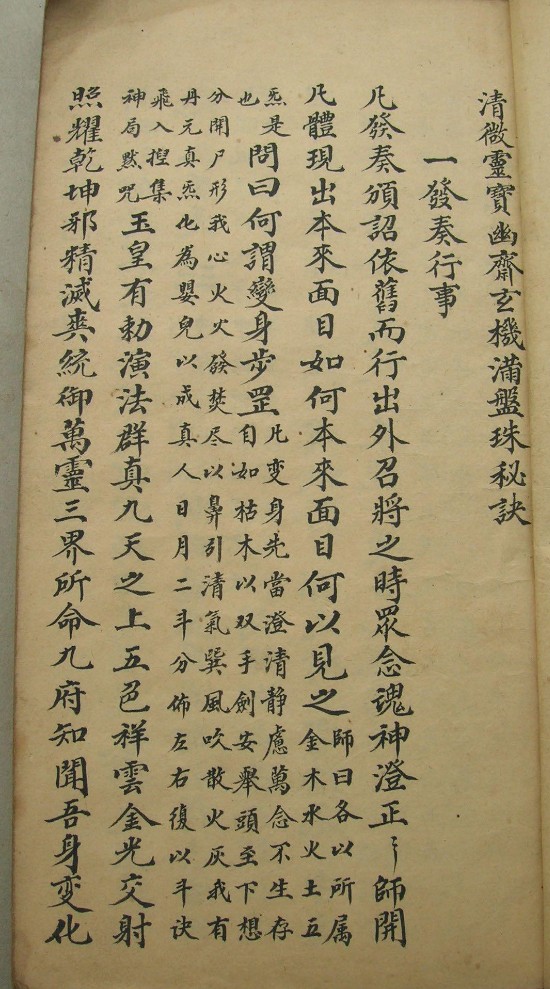 清微靈寶幽齋玄機滿盤珠秘訣
一發奏行事
凡發奏頒詔依舊而行出外召將之時眾念魂神澄正〻師開
凡體現出本來面目如何本來面目何以見之
師曰各以所属
金木水火土五
炁是
也
問曰何謂變身步罡
凡变身先當澄清静慮萬念不生存
自如枯木以双手劍安舉頭至下想
分開尸形我心火火發焚尽以鼻引清氣巽風吹散火灰我有
丹元真炁化為嬰兒以成真人日月二斗分佈左右復以斗诀
飛入揑集
神局黙咒
玉皇有勅演法群真九天之上五色祥雲金光交射
照耀乾坤邪精滅爽統御萬靈三界所命九府知聞吾身变化